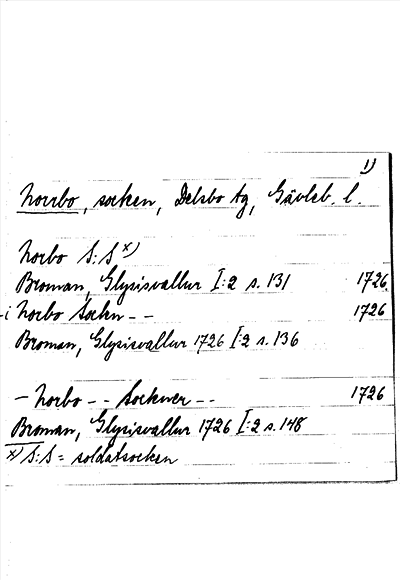 1)
Norrbo, socken, Delsbo tg, Gävleb. l.
Norbo S:S x)
Broman, Glysisvallur I:2 s. 131 1726.
-i Norbo Sockn -- 1726
Broman, Glysisvallur 1726 I:2 s. 136
- Norbo -- Sockner -- 1726
Broman, Glysisvallur 1726 I:2 s. 148
x) S:S = soldatsocken